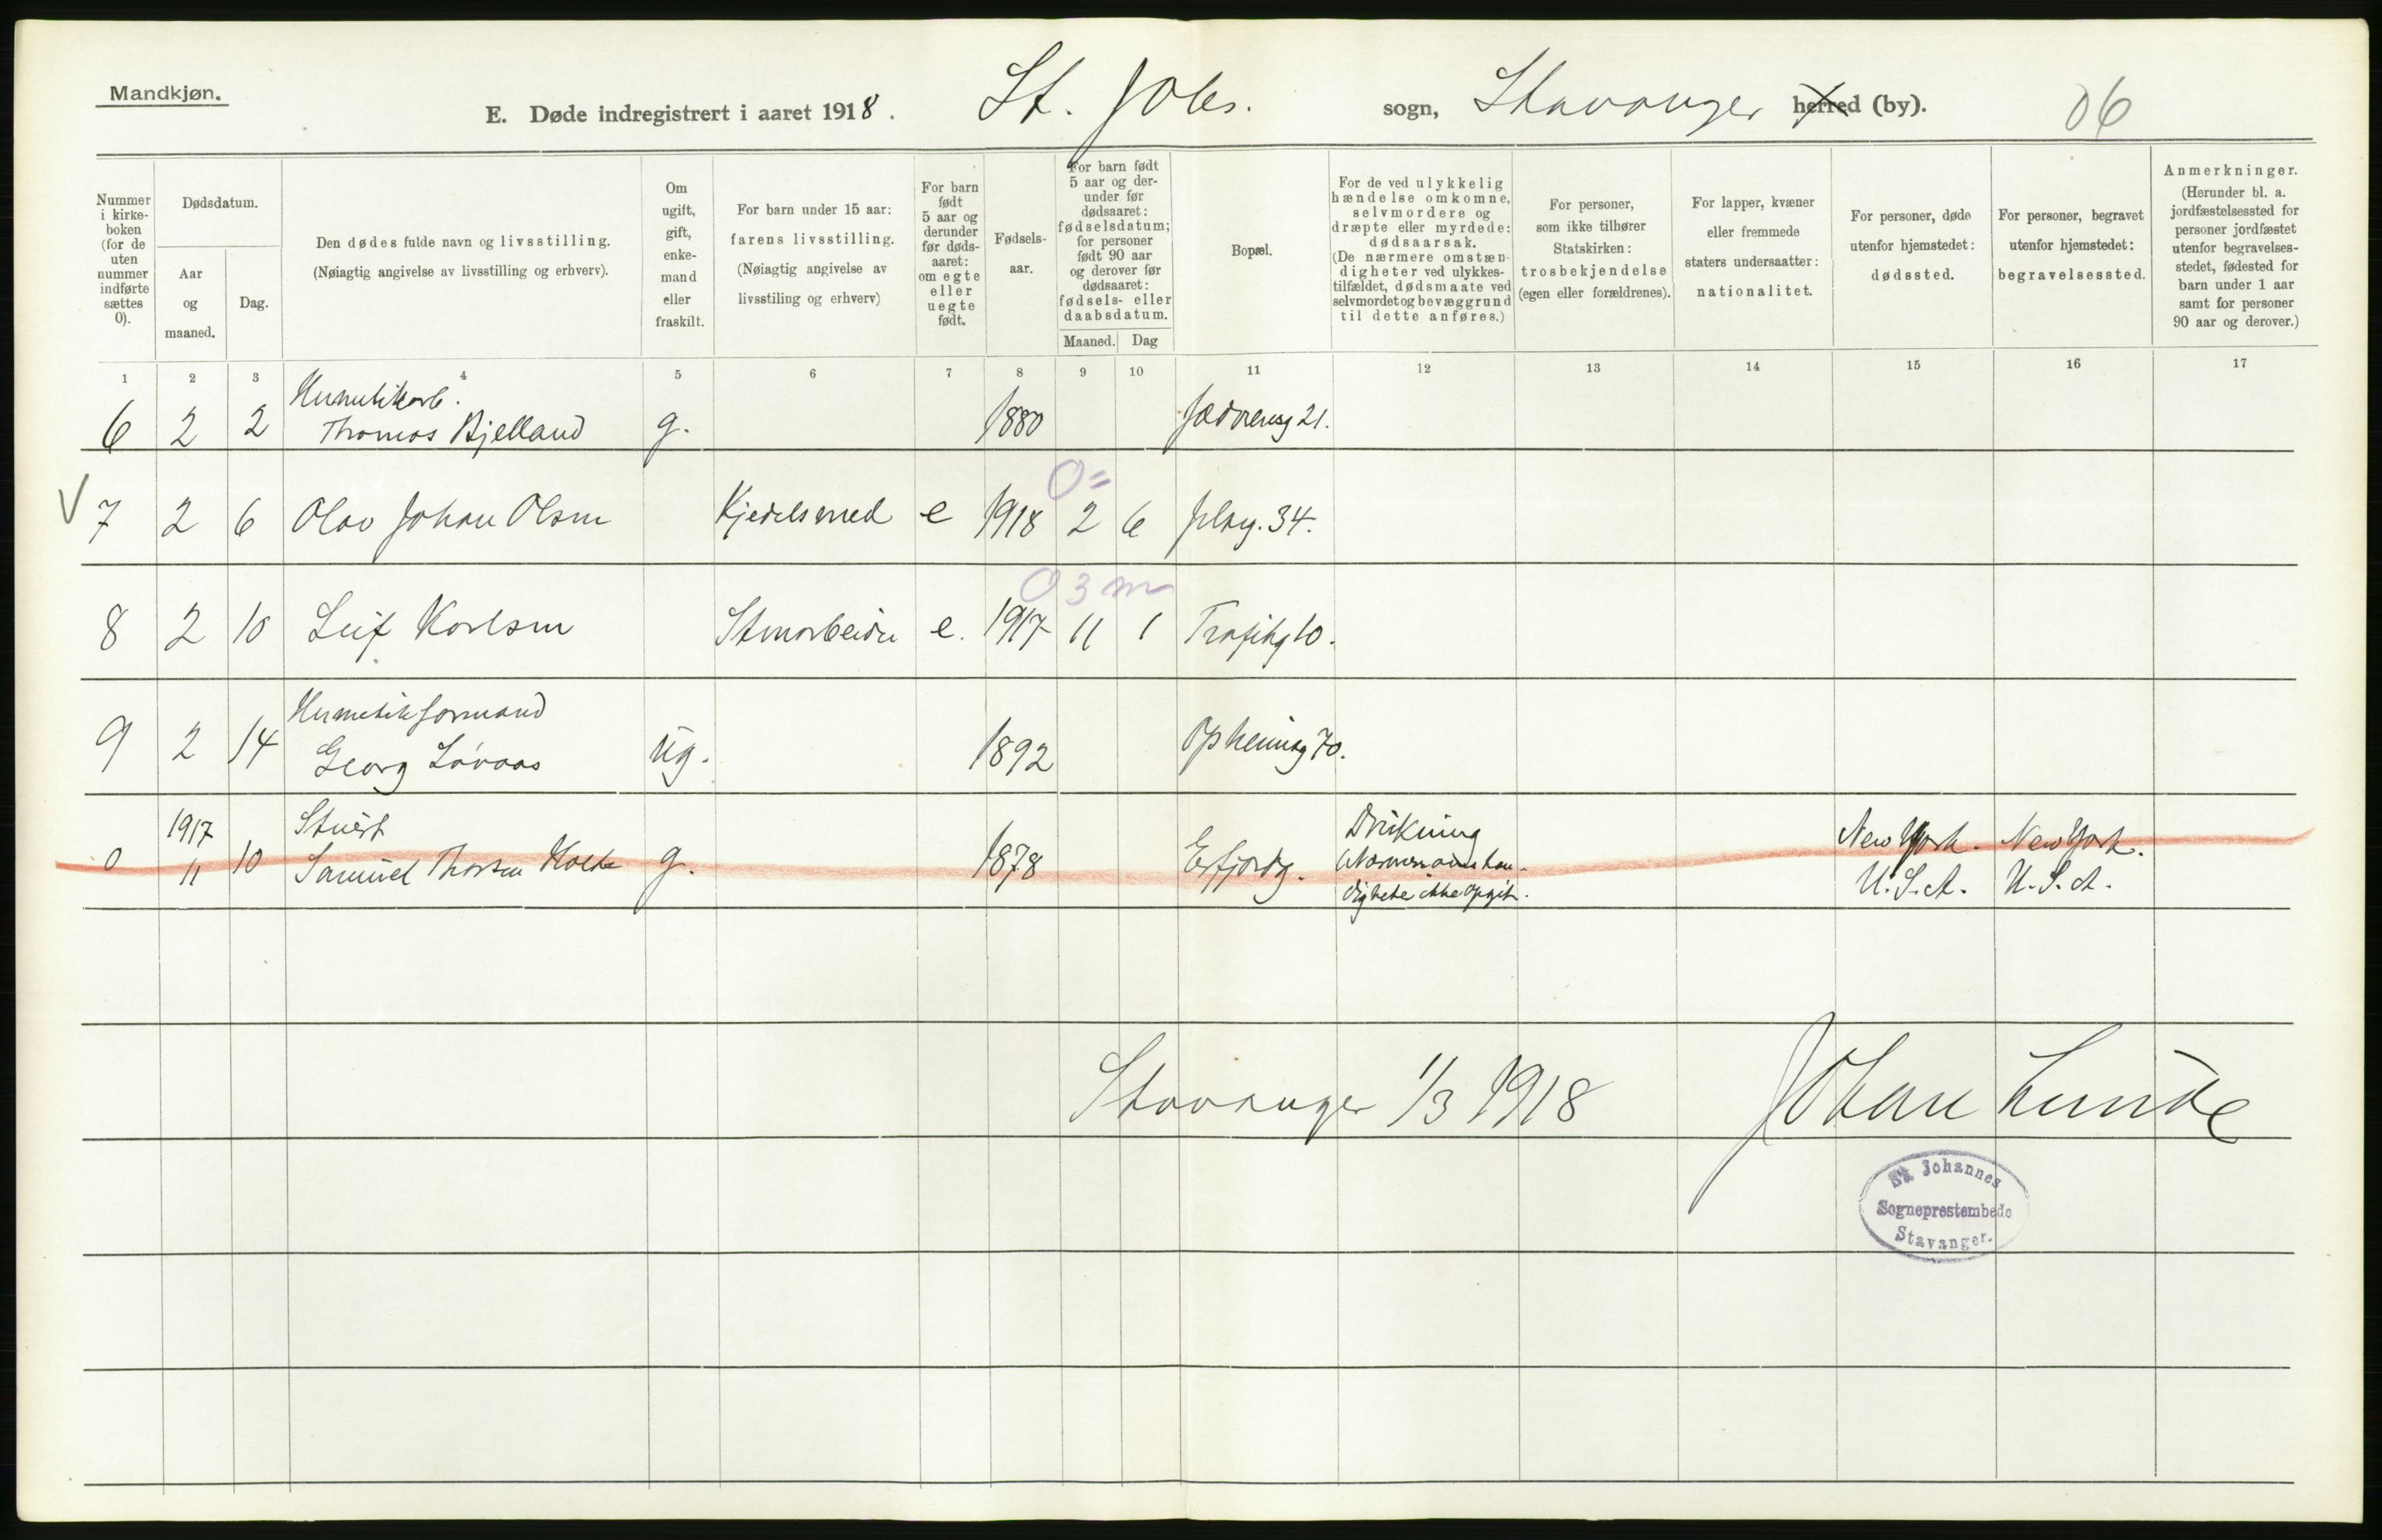 Mandkjøn.
E. Døde indregistrert i aaret 1918. St. Johs. sogn, Stavanger herred (by). 06
Nummer i kirke-boken (for de uten nummer indførte sættes 0).
Dødsdatum.
Aar og maaned.
Dag.
Den dødes fulde navn og livsstilling.
(Nøiagtig angivelse av livsstilling og erhverv).
Om ugift, gift, enke-mand eller fraskilt.
For barn under 15 aar: farens livsstilling.
(Nøiagtig angivelse av livsstiling og erhverv)
For barn født 5 aar og derunder før døds-aaret: om egte eller uegte født.
Fødsels-aar.
For barn født 5 aar og der-under før dødsaaret: fødselsdatum; for personer født 90 aar og derover før dødsaaret: fødsels- eller daabsdatum.
Maaned. Dag
Bopæl.
For de ved ulykkelig hændelse omkomne, selvmordere og dræpte eller myrdede: dødsaarsak.
(De nærmere omstæn-digheter ved ulykkes-tilfældet, dødsmaate ved selvmordet og bevæggrund til dette anføres.)
For personer, som ikke tilhører Statskirken: trosbekjendelse (egen eller forældrenes).
For lapper, kvæner eller fremmede staters undersaatter: nationalitet.
For personer, døde utenfor hjemstedet: dødssted.
For personer, begravet utenfor hjemstedet: begravelsessted.
Anmerkninger.
(Herunder bl. a. jordfæstelsessted for personer jordfæstet utenfor begravelses-stedet, fødested for barn under 1 aar samt for personer 90 aar og derover.)
1 2 3 4 5 6 7 8 9 10 11 12 13 14 15 16 17
Hermetikarb.
6 2 2 Thomas Bjelland g. 1880 Jædrensg 21.
0=
V 7 2 6 Olav Johan Olsen Kjedelsmed e 1918 2 6 34.
0 3 m
8 2 10 Leif Karlsen Stenarbeider e. 1917 11 1 Trafikg 10.
Hermetikformand
9 2 14 Georg Løvaas ug. 1892 Opheimsg 70.
1917 Stuert Drukning New York. New York.
0 11 10 Samuel Thorsen Holte g. 1878 Erfjordg. (Nærmere omstæn-
digheter ikke opgit. U.S.A. U.S.A.
Stavanger 1/3 1918 Johan Lunde
St Johannes
Sogneprestembede
Stavanger.